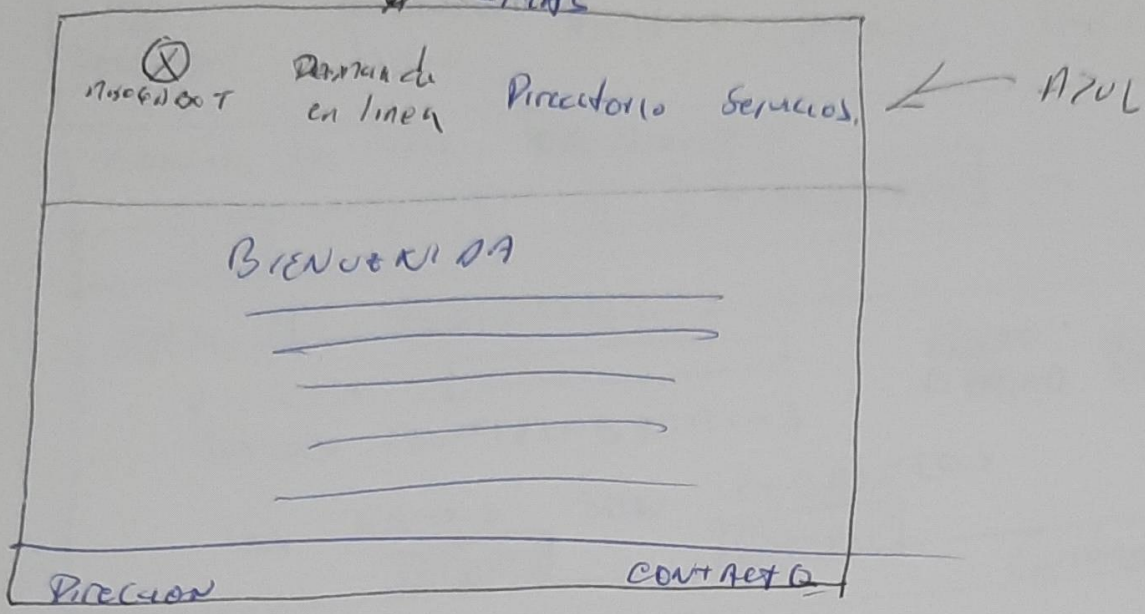 Demanda
en linea
Directorio
Servicios.
AZUL
BIENVENIDA
DIRECCION
CONTACTO